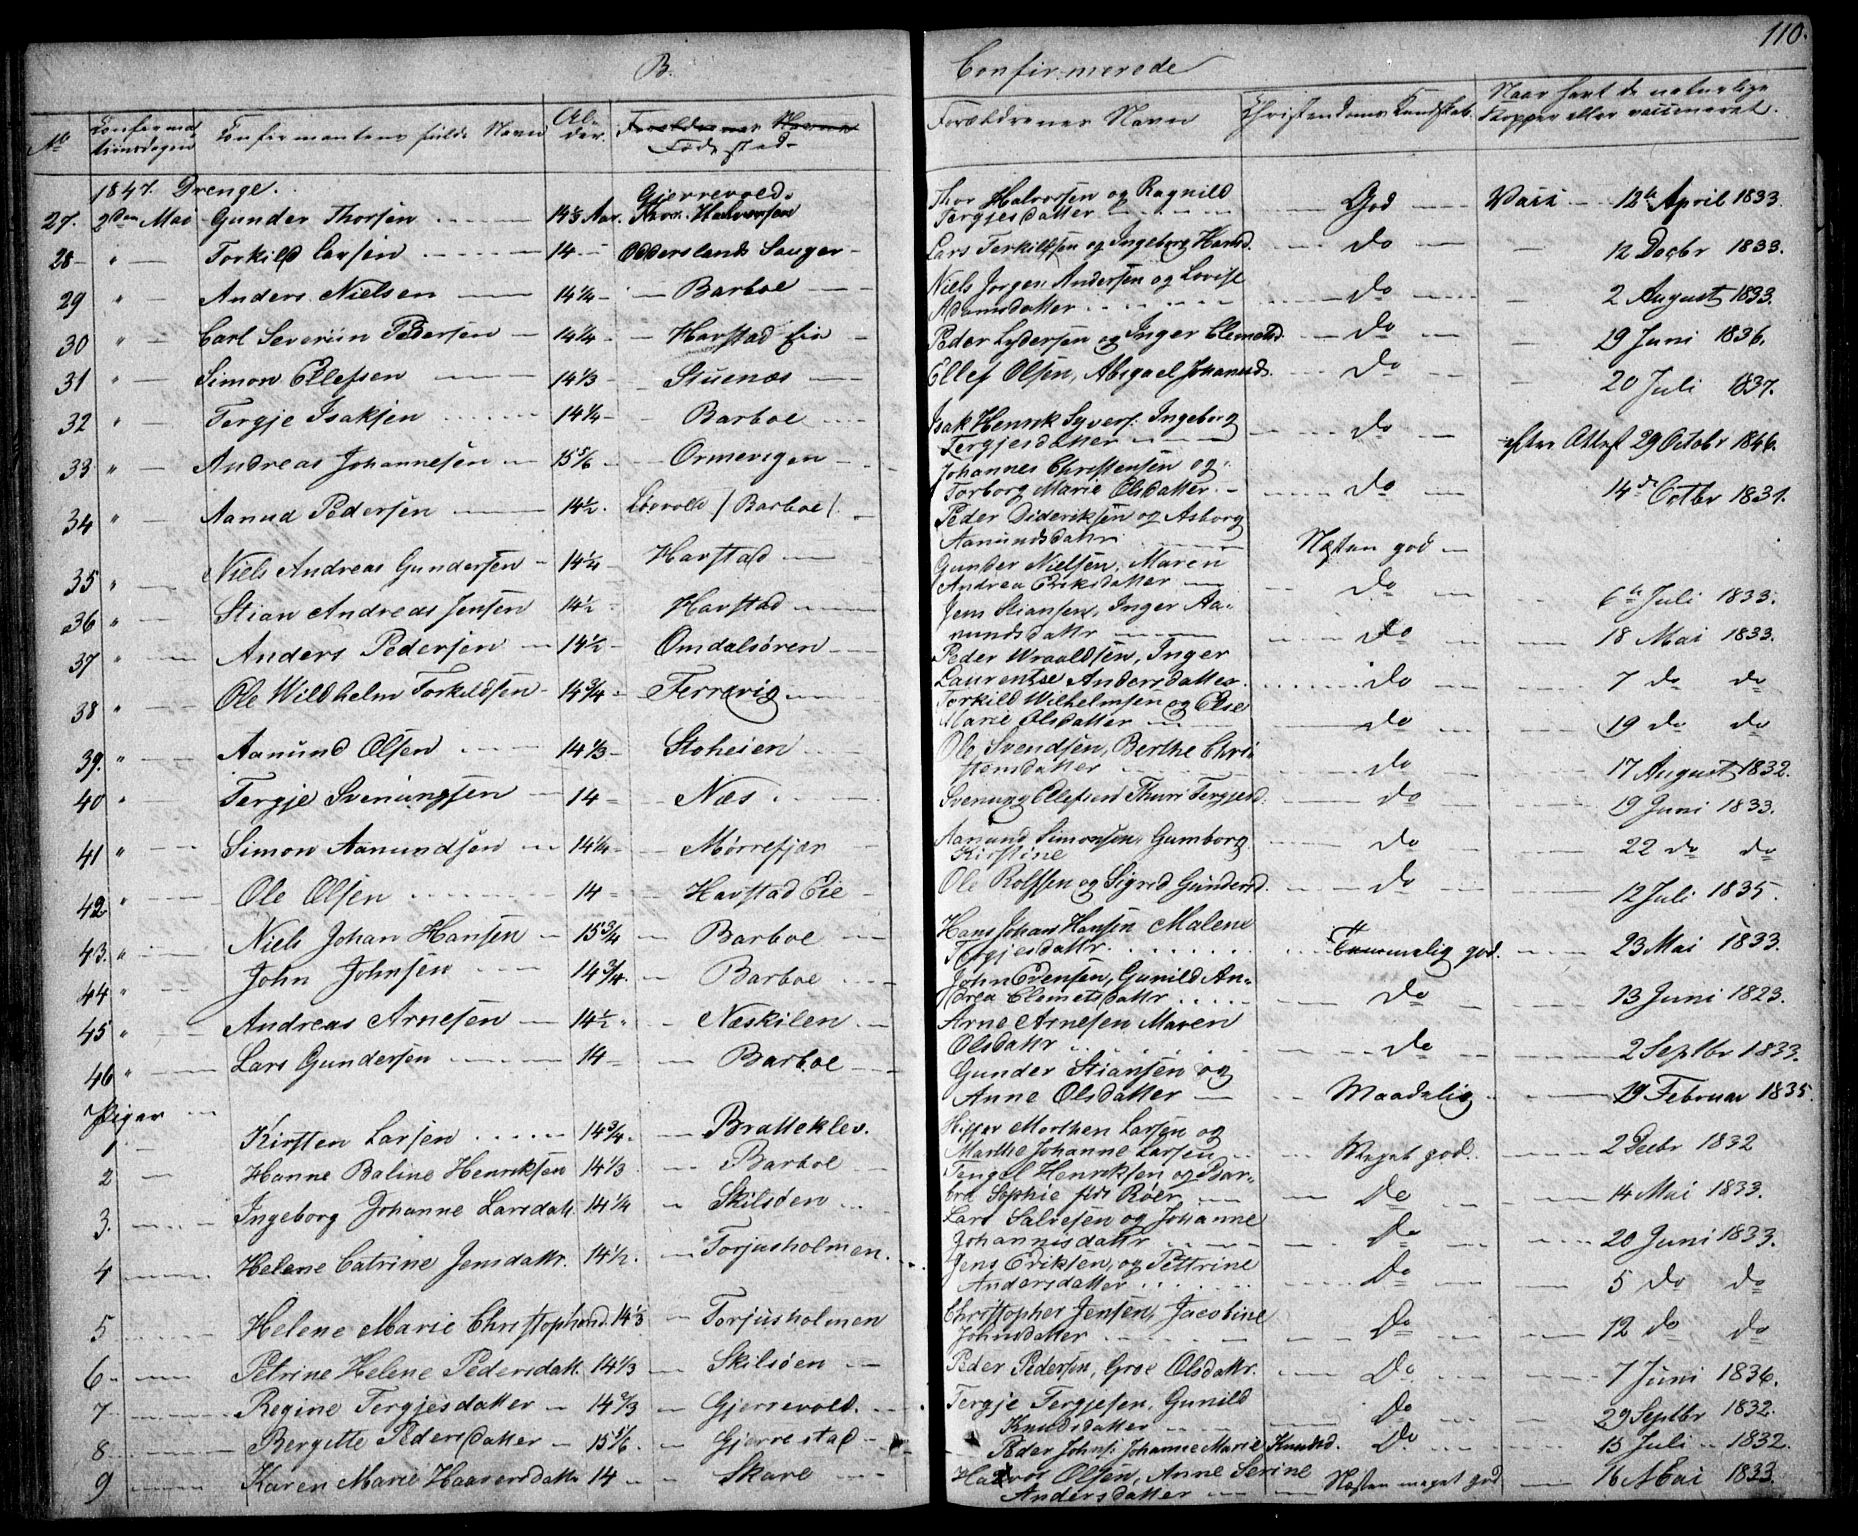 B.
Confirmerede
110.
No
Confirma-
tionsdagen
Confirmantens fulde Navn
Al-
der.
Forældrenes Navne
Fødested
Forældrenes Navn
Christendoms Kundskab.
Naar havt de naturlige
Kopper eller vaccineret.
1847. Drenge.
27. 2den Mai Gunder Thorsen 14 1/3 Aar. Gjerrevold. Thor Halvorsen
Thor Halvorsen og Ragnild
Tergjesdatter God Vacc 12te April 1833.
28 " Torkild Larsen 14 Oddersland Sauger
Lars Terkildsen og Ingeborg Hansd. do 12 Decbr 1833.
29 " Anders Nielsen 14 1/4 Barboe
Niels Jørgen Andersen og Lovise
Adamsdatter do 2 August 1833.
30 " Carl Severiin Pedersen 14 1/4 Havstad Eie
Peder Lydersen og Inger Clemetsd. do 29 Juni 1836.
31 " Simon Ellefsen 14 1/3 Stuenæs
Ellef Olsen, Abigael Johannsd. do 20 Juli 1837.
32 " Tergje Isaksen 14 1/4 Barboe
Isak Henrik Syvers. Ingeborg
Tergjesdatter do efter Attest 29 Octobr 1846.
33 " Andreas Johannesen 15 5/6 Ormevigen
Johannes Christensen og
Torborg Marie Olsdatter do 14de Octbr 1831.
34 " Aanud Pedersen 14 1/2 Løvold / Barboe /
Peder Dideriksen og Asborg
Aanundsdatr Næsten god
35 " Niels Andreas Gundersen 14 1/4 Havstad
Gunder Nielsen, Maren
Andrea Eriksdatter do 6te Juli 1833.
36 " Stian Andreas Jensen 14 1/2 Havstad
Jens Stiansen, Inger Aa-
nundsdattr do 18 Mai 1833.
37 " Anders Pedersen 14 1/2 Omdalsøren
Peder Wraaldsen, Inger
Laurentse Andersdatter do 7 do do
38 " Ole Wildhelm Torkildsen 14 3/4 Terrevig
Torkild Wilhelmsen og Else
Marie Olsdatter do 19 do do
39. " Aanund Olsen 14 1/3 Stoheien
Ole Svendsen, Berthe Chri-
stensdatter do 17 August 1832.
40 " Tergje Svenungsen 14 Næs
Svenung Ellefsen Thuri Tergjesd. do 19 Juni 1833.
41 " Simon Aanundsen 14 1/4 Mørrefjær
Aanund Simonsen, Gumborg
Kirstine do 22 do do
42 " Ole Olsen 14 Havstad Eie
Ole Rolfsen og Sigrid Gundersd. do 12 Juli 1835.
43. " Niels Johan Hansen 15 3/4 Barboe
Hans Johan Hansen Malene
Tergjesdattr. Temmelig god. 23 Mai 1833.
44 " John Johnsen 14 3/4. Barboe
John Evensen, Gunild An-
drea Clemetsdattr do 13 Juni 1823.
45 " Andreas Arnesen 14 1/2 Næskilen
Arne Arnesen Maren
Olsdattr do 2 Septbr 1833.
46 " Lars Gundersen 14 Barboe
Gunder Stiansen og
Anne Olsdatter Maadelig 19 Februar 1835.
Piger
1 Kirsten Larsen 14 3/4. Bratteklev.
Morthen Larsen og
Marthe Johanne Larsen Meget god. 2 Decbr 1832
2 Hanne Baline Henriksen 14 1/3 Barboe
Tengel Henriksen og Bar-
bra Sophie født Röer do 14 Mai 1833.
3. Ingeborg Johanne Larsdatt. 14 1/4 Skilsöen
Lars Salvesen og Johanne
Johannisdattr do 20 Juni 1833.
4 Helene Catrine Jensdattr. 14 1/2. Torjusholmen.
Jens Eriksen, og Pettrine
Andersdatter do 5 do do
5 Helene Marie Christophersd. 14 1/3 Torjusholmen
Christopher Jensen, Jacobine
Johnsdatter do 12 do do
6 Petrine Helene Pedersdatt. 14 1/3 Skilsöen
Peder Pedersen, Groe Olsdattr. do 7 Juni 1836.
7 Regine Tergjesdatter 14 2/3 Gjerrevold.
Tergje Tergjesen, Gunild
Knudsdatter do 29 Septbr 1832.
8 Bergitte Pedersdatter 15 1/6 Gjerrestad
Peder Johns. Johanne Marie Knudsd. do 15 Juli 1832.
9 Karen Marie Haavorsdattr 14 Skare
Havor Olsen, Anne Serine
Andersdatter Næsten meget god 16 Mai 1833.